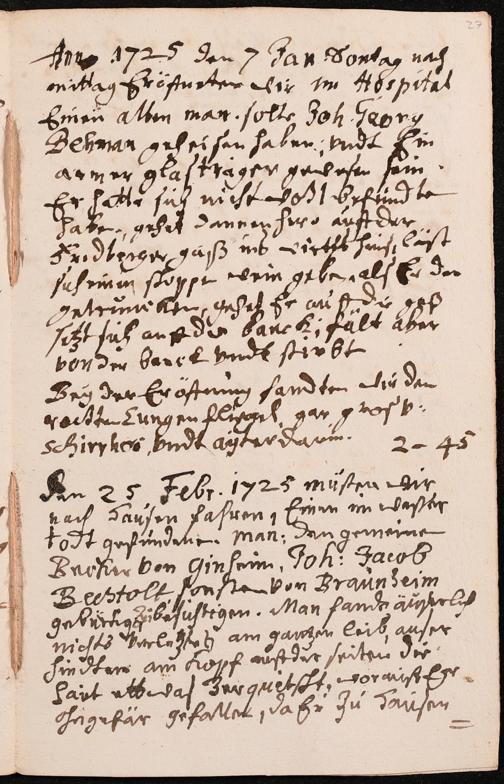 27
Anno 1725 den 7 Jan Sontag nach
mittag Eröfneten wir im Hospital
Einen alten man. solte Joh. Georg
Behman geheisen haben, undt Ein
armer glasträger gewesen sein.
Er hatte sich nicht wohl befindte
habe, gehet dannenhero auff der
Fridberger gass ins wirths haus, läst
sich einen schoppe wein gebe, als Er den
getruncken, gehet Er auff die gass
setzt sich auf die banck, fält aber
von der banck undt stirbt
Bey der Eröffnung fandten wir den
rechten Lungen fliegel, gar gros v:
schirrhos, undt ayter darin. 2-45
Den 25 Febr. 1725 musten wir
nach Hausen fahren, Einen im wasser
todt gefundenen man, den gemeine
Becker von Ginheim, Joh: Jacob
Bechtolt sonsten von Braunheim
gebürtig zu besichtigen. Man fande äuserlich
nichts verletztes am gantzen leib, auser
hindten am Kopf auf der seiten die
haut etwas zerquetscht, worauf Er
ohngefär gefallen, da Er zu Hausen